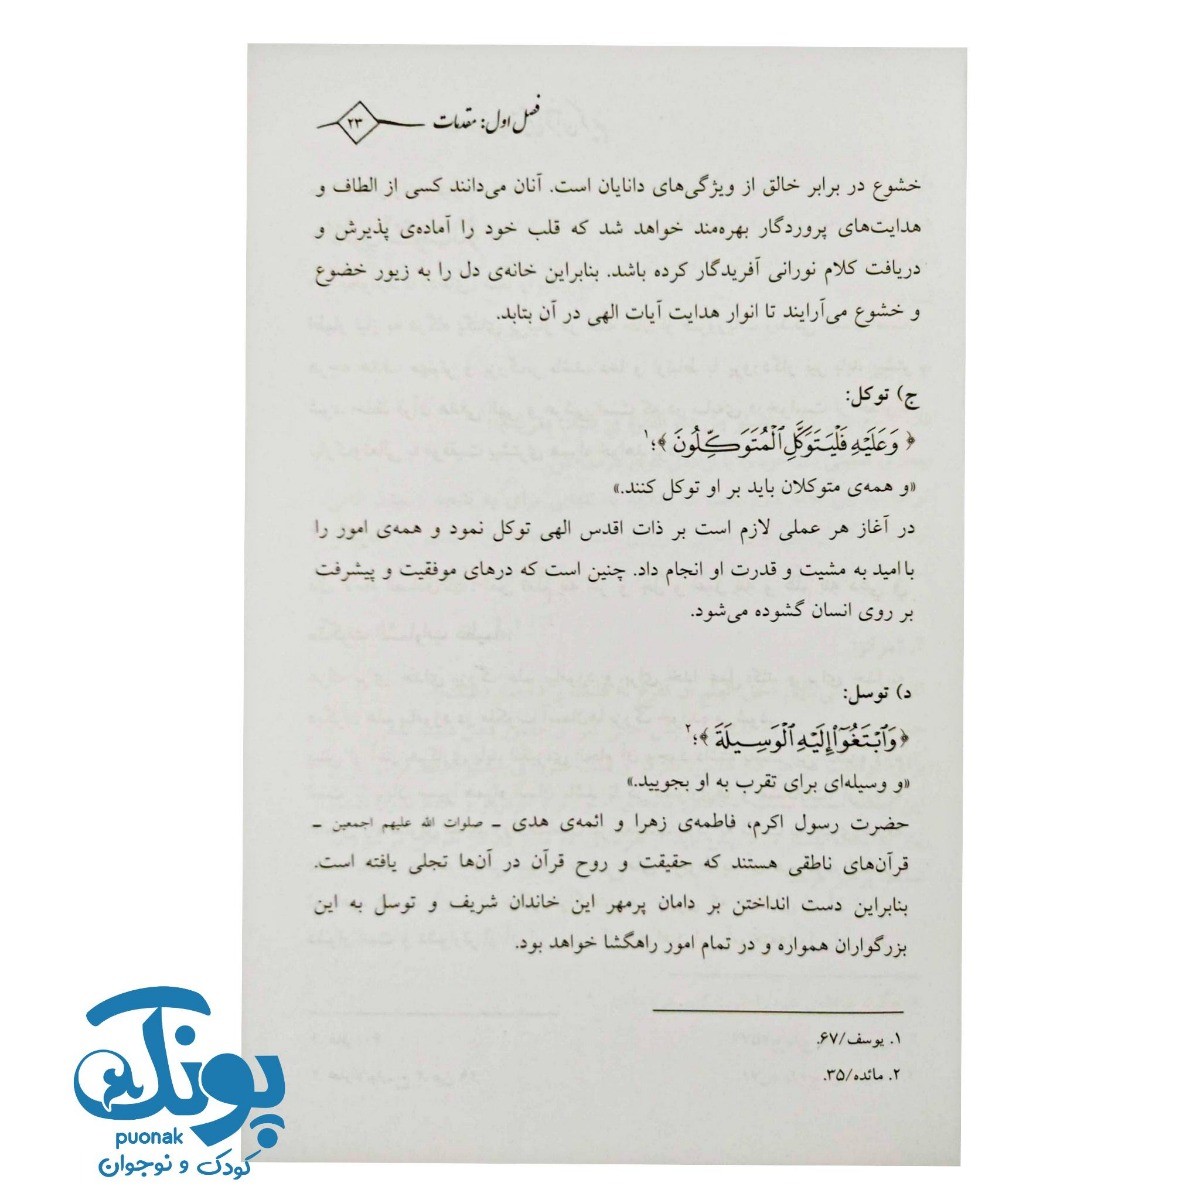 فصل اول: مقدمات ۲۳
خشوع در برابر خالق از ویژگی‌های دانایان است. آنان می‌دانند کسی از الطاف و
هدایت‌های پروردگار بهره‌مند خواهد شد که قلب خود را آماده‌ی پذیرش و
دریافت کلام نورانی آفریدگار کرده باشد. بنابراین خانه‌ی دل را به زیور خضوع
و خشوع می‌آرایند تا انوار هدایت آیات الهی در آن بتابد.
ج) توکل:
﴿وَعَلَيْهِ فَلْيَتَوَكَّلِ ٱلْمُتَوَكِّلُونَ﴾؛۱
«و همه‌ی متوکلان باید بر او توکل کنند.»
در آغاز هر عملی لازم است بر ذات اقدس الهی توکل نمود و همه‌ی امور را
با امید به مشیت و قدرت او انجام داد. چنین است که درهای موفقیت و پیشرفت
بر روی انسان گشوده می‌شود.
د) توسل:
﴿وَٱبْتَغُوٓا۟ إِلَيْهِ ٱلْوَسِيلَةَ﴾؛۲
«و وسیله‌ای برای تقرب به او بجویید.»
حضرت رسول اکرم، فاطمه‌ی زهرا و ائمه‌ی هدی ـ صلوات الله علیهم اجمعین ـ
قرآن‌های ناطقی هستند که حقیقت و روح قرآن در آن‌ها تجلی یافته است.
بنابراین دست انداختن بر دامان پرمهر این خاندان شریف و توسل به این
بزرگواران همواره و در تمام امور راهگشا خواهد بود.
۱. یوسف/۶۷.
۲. مائده/۳۵.
پونک
puonak
کودک و نوجوان